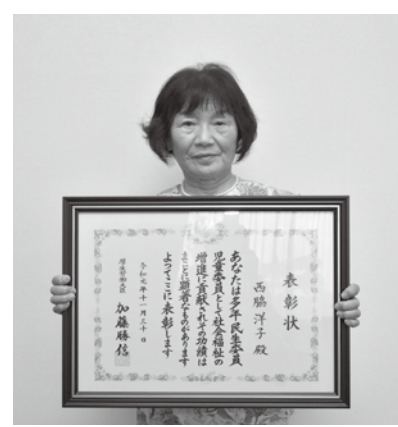 表彰状
西脇洋子殿
あなたは多年民生委員
児童委員として社会福祉の
増進に貢献されその功績は
まことに顕著なものがあります
よってここに表彰します
令和元年十一月三十日
厚生労働大臣
加藤勝信